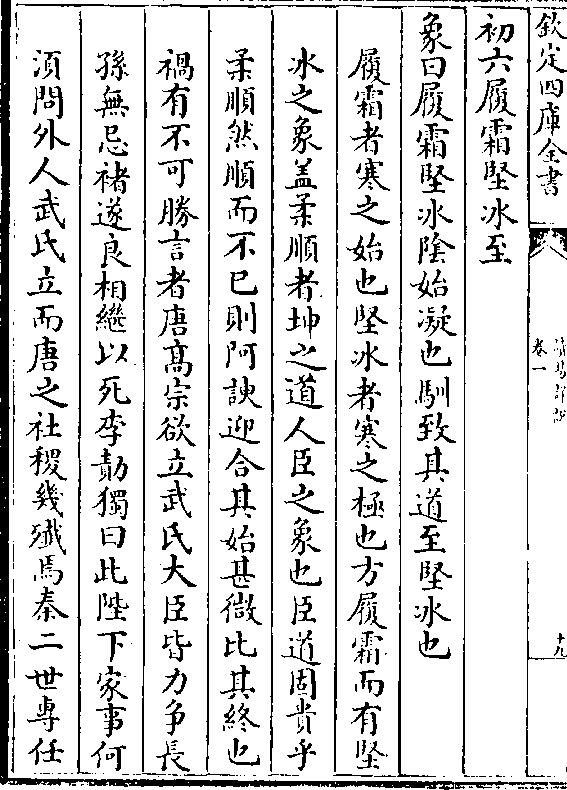 欽定四庫全書
卷一
十九
初六履霜堅冰至
象曰履霜堅冰陰始凝也馴致其道至堅冰也
履霜者寒之始也堅冰者寒之極也方履霜而有堅
冰之象盖柔順者坤之道人臣之象也臣道固貴乎
柔順然順而不已則阿諛迎合其始甚微比其終也
禍有不可勝言者唐髙宗欲立武氏大臣皆力争長
孫無忌褚遂良相繼以死李勣獨曰此陛下家事何
湏問外人武氏立而唐之社稷幾殱焉秦二世專任